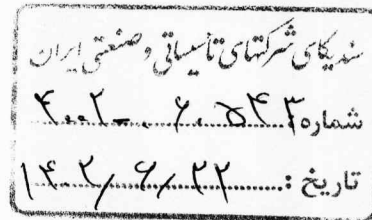 سندیکای شرکتهای تأسیساتی و صنعتی ایران
شماره ۴۰۰۲-۰۶۰۵۴۳
تاریخ : ۱۴۰۲/۶/۲۲